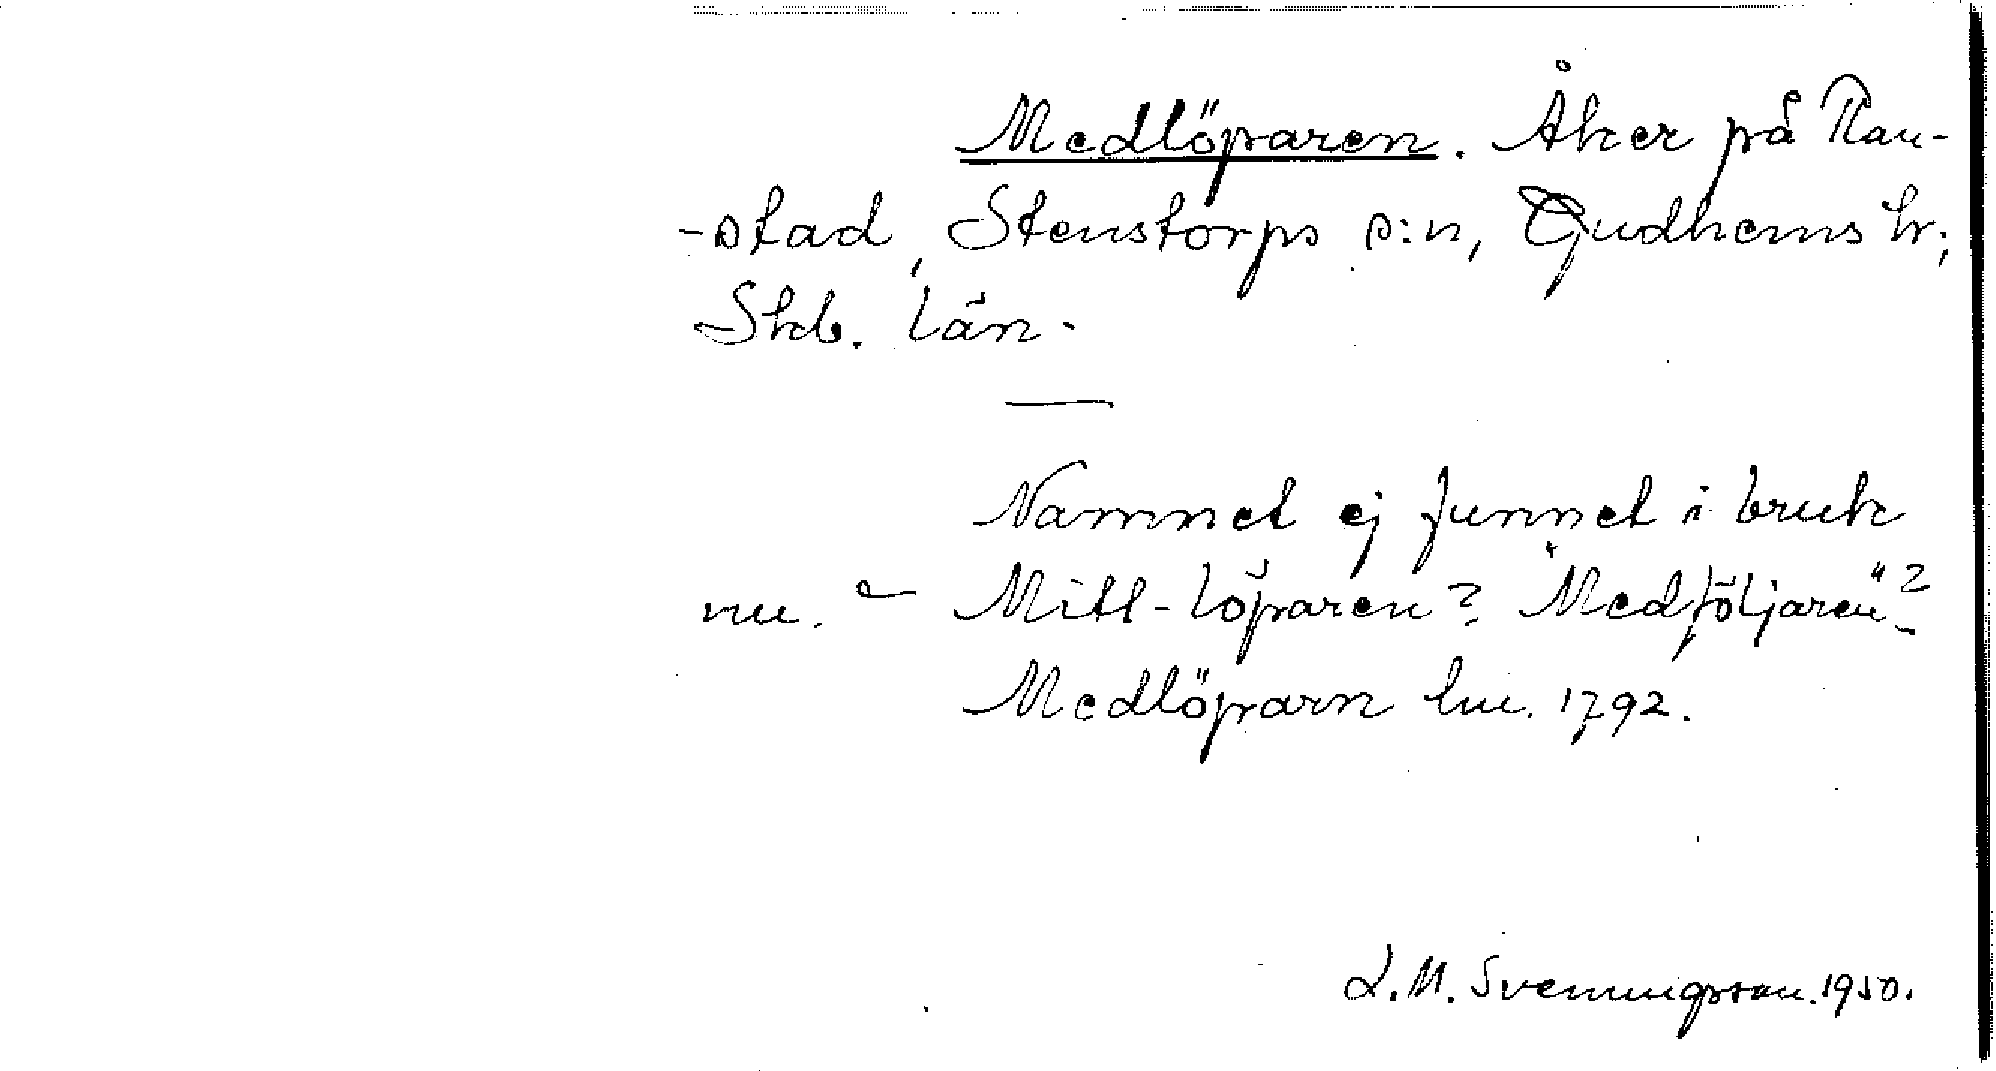 Medlöparen. Åker på Ran-
-stad, Stenstorps s:n, Gudhems hr;
Skb. län.
Namnet ej funnet i bruk
nu. — Mitt-löparen? "Medföljaren"?
Medlöparn lm. 1792.
L.M. Svenungsson. 1950.